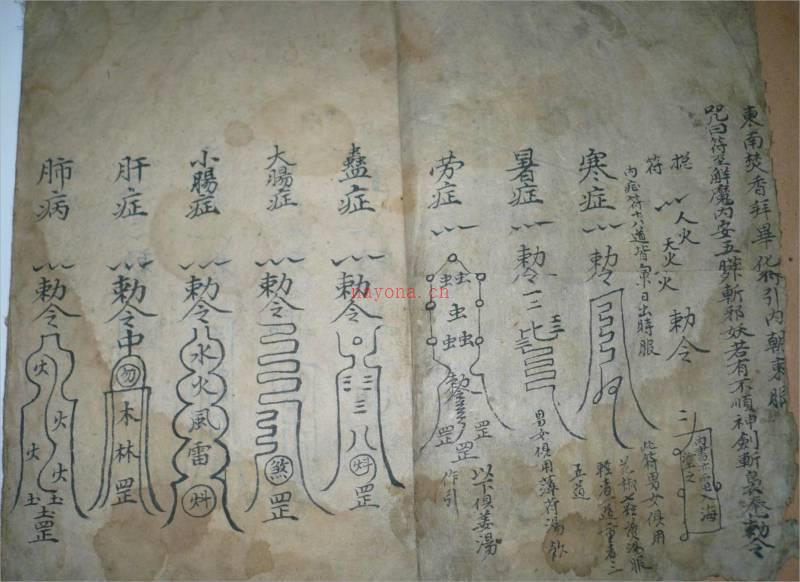 東南焚香拜畢化符引內朝東服
咒曰符至解魔內安五臟斬邪妖若有不順神劍斬急急勅令
符
人火
天火
火
勅令
內症符十八道皆東日出時服
此符男女俱用
花椒七粒燙湯服
輕者一道重者三
五道
寒症
勅令
暑症
勅令
男女俱用薄荷湯飲
劳症
虫虫
虫
虫虫
罡
罡
以下俱姜湯
作引
蠱症
勅令
三八
罡
大腸症
勅令
煞
罡
小腸症
勅令
水火風雷
肝症
勅令中
勿
木林罡
肺病
勅令
火
火
火
罡
nayona.cn